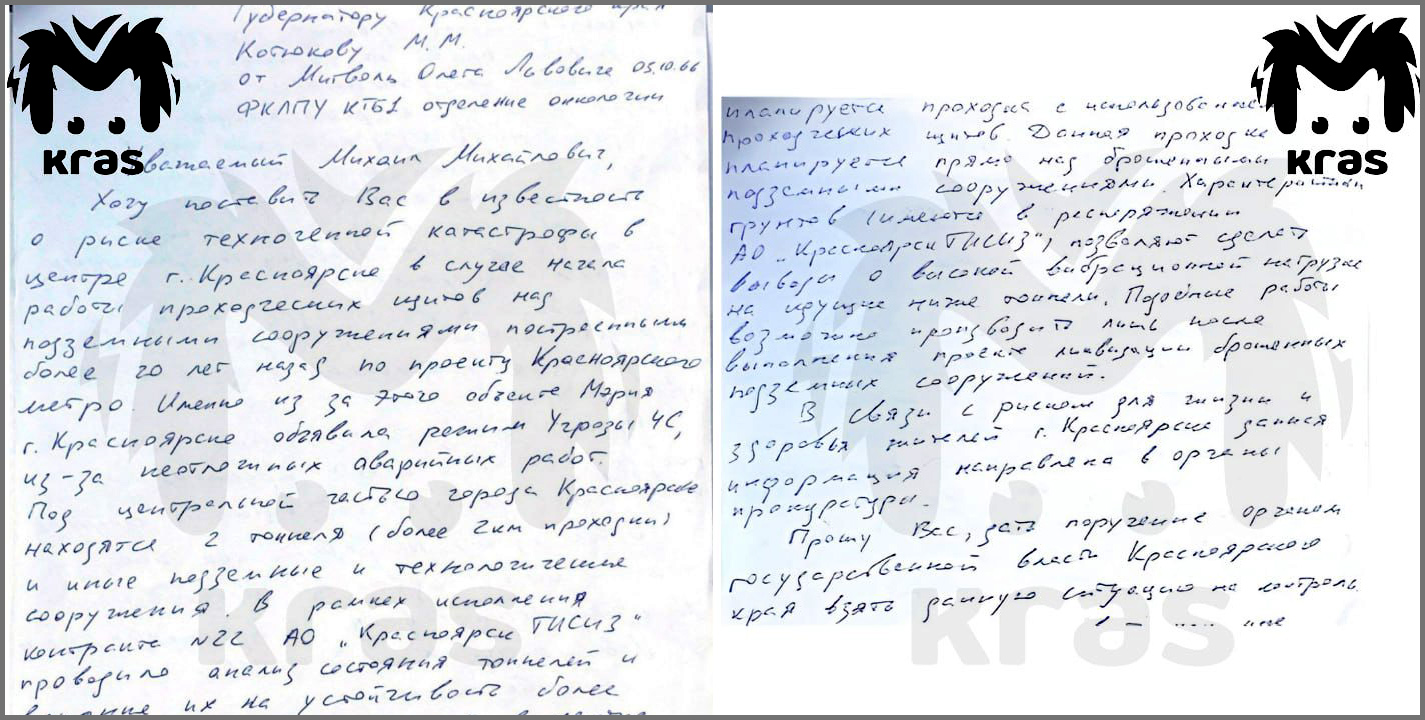 kras
Губернатору Красноярского края
Котюкову М.М.
от Митволь Олега Львовича 03.10.66
ФКЛПУ КТБ1 отделение онкологии
Уважаемый Михаил Михайлович,
Хочу поставить Вас в известность
о риске техногенной катастрофы в
центре г. Красноярска в случае начала
работы проходческих щитов над
подземными сооружениями построенными
более 20 лет назад по проекту Красноярского
метро. Именно из за этого объекта Мэрия
г. Красноярска объявила режим Угрозы ЧС,
из-за неотложных аварийных работ.
Под центральной частью города Красноярска
находятся 2 тоннеля (более 2км проходки)
и иные подземные и технологические
сооружения. В рамках исполнения
контракта №22 АО „Красноярск ТИСИЗ“
проводило анализ состояния тоннелей и
влияние их на устойчивость более
kras
kras
планируется проходка с использованием
проходческих щитов. Данная проходка
планируется прямо над брошенными
подземными сооружениями. Характеристики
грунтов (имеются в распоряжении
АО „Красноярск ТИСИЗ“) позволяют сделать
выводы о высокой вибрационной нагрузке
на идущие ниже тоннели. Подобные работы
возможно производить лишь после
выполнения проекта ликвидации брошенных
подземных сооружений.
В связи с риском для жизни и
здоровья жителей г. Красноярска данная
информация направлена в органы
прокуратуры.
Прошу Вас, дать поручение органам
государственной власти Красноярского
края взять данную ситуацию на контроль
kras